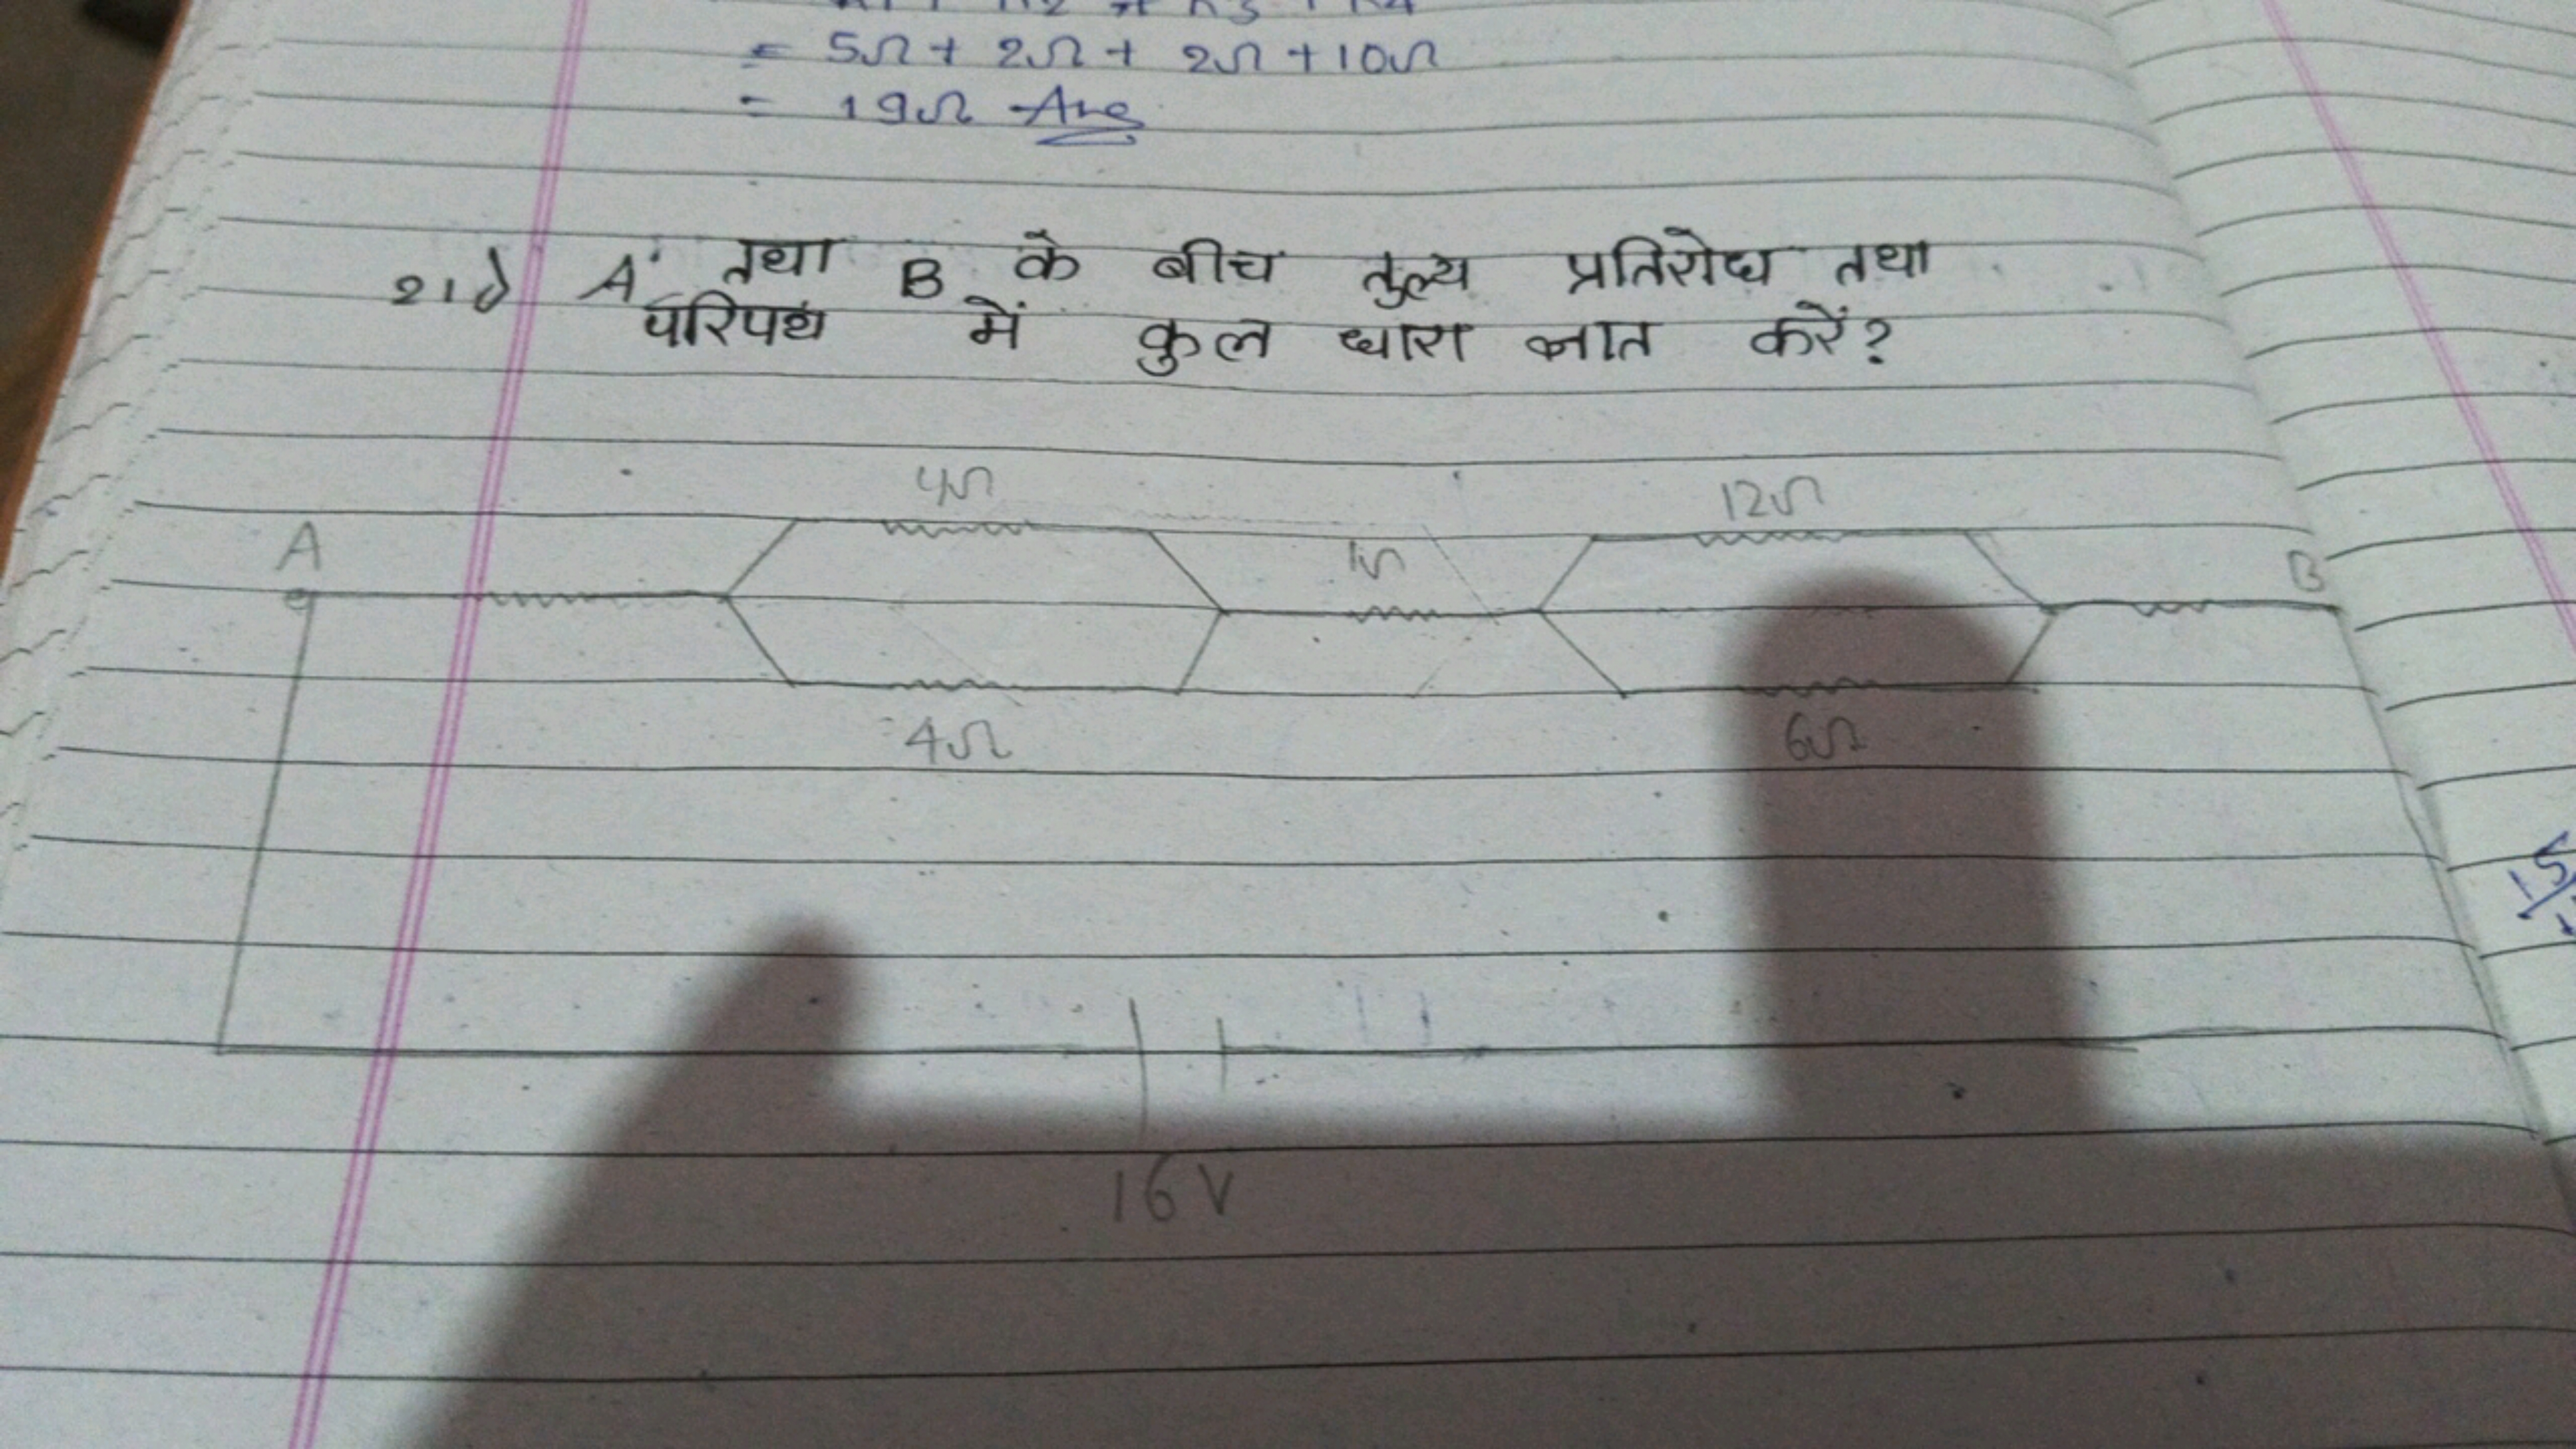 = 5Ω + 2Ω + 2Ω + 10Ω
= 19Ω Ans
21) A तथा B के बीच तुल्य प्रतिरोध तथा
परिपथ में कुल धारा ज्ञात करें?
4Ω 12Ω
A 1Ω B
4Ω 6Ω
16V